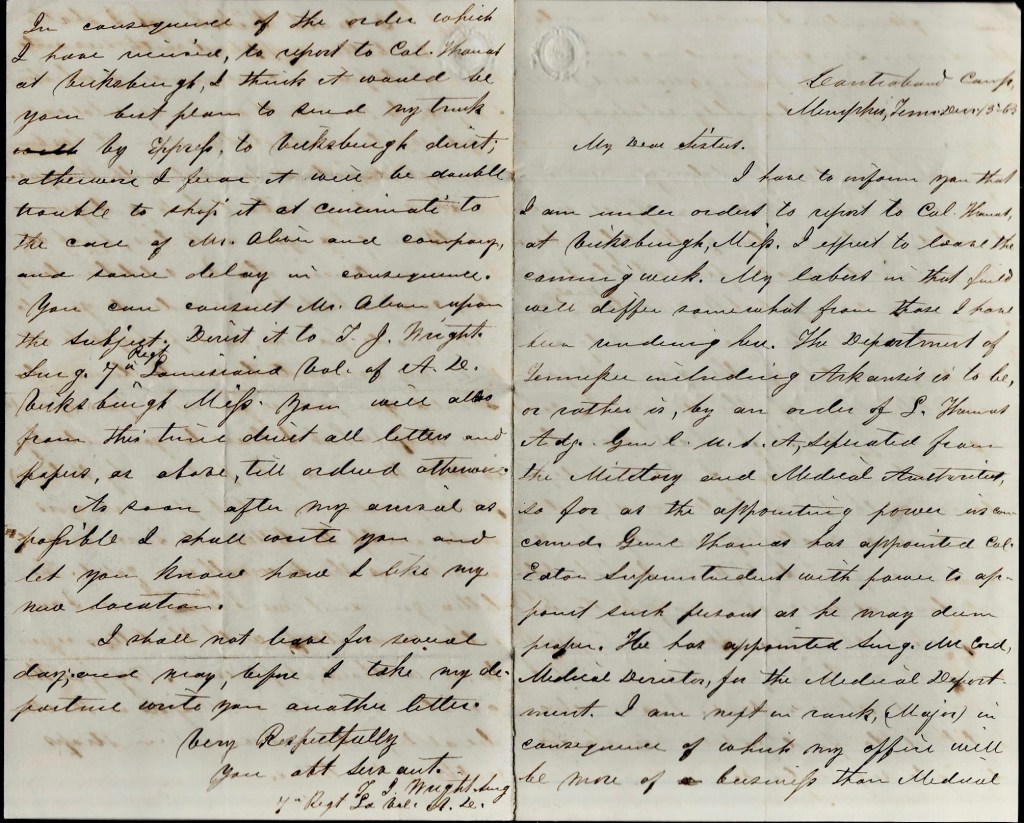 In consequence of the order which
I have recieved, to report to Col. Thomas
at Vicksburgh, I think it would be
your best plan to send my trunk
by Express, to Vicksburgh direct;
otherwise I fear it will be double
trouble to ship it at Cincinati to
the care of Mr. Alvon and company,
and some delay in consequence.
You can consult Mr. Alvon upon
the subject. Direct it to T. J. Wright.
Surg. 7th Regt Louisiana Vol. of A. D.
Vicksburgh Miss. You will also
from this time direct all letters and
papers, as above, till ordered otherwise.
As soon after my arrival as
possible I shall write you and
let you know how I like my
new location.
I shall not leave for several
days, and may, before I take my de-
parture write you another letter.
Very Respectfully
Your obt Servant.
T. J. Wright Surg
7th Regt La Vol. A. D.
Contraband Camp,
Memphis, Tenn. Dec. 63
My Dear Sisters.
I have to inform you that
I am under orders to report to Col. Thomas,
at Vicksburgh, Miss. I expect to leave the
coming week. My labors in that field
will differ somewhat from those I have
been rendering here. The Department of
Tennessee including Arkansis is to be,
or rather is, by an order of L. Thomas
Adg. Genl. U. S. A, seperated from
the Millitary and Medical Authorities,
so far as the appointing power is con
cerned. Genl Thomas has appointed Col.
Eaton Superintendent with power to ap-
point such persons as he may deem
proper. He has appointed Surg. McCord,
Medical Director, for the Medical Depart-
ment. I am next in rank, (Major) in
consequence of which my office will
be more of a business than Medical